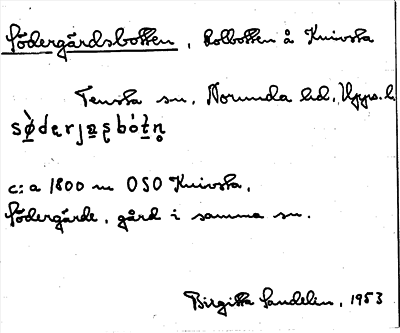 Södergårdsbotten, kolbotten å Knivsta
Tensta sn, Norunda hd, Upps. l.
sø̀derjaṣbót̯n̥
c:a 1800 m OSO Knivsta,
Södergärde, gård i samma sn.
Birgitta Sandelin, 1953